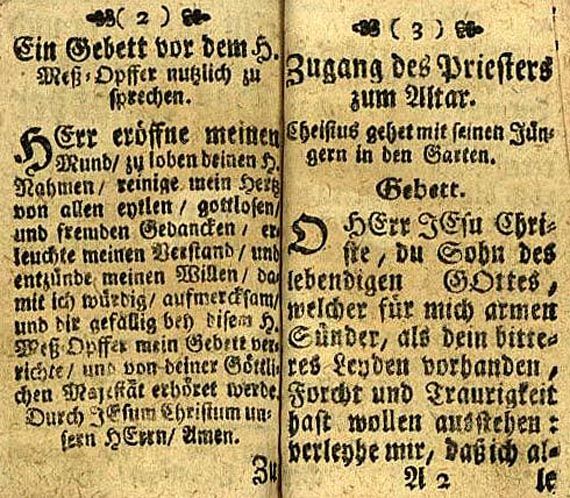 ( 2 )
Ein Gebett vor dem H.
Meß-Opffer nutzlich zu
sprechen.
HErr eröffne meinen
Mund/ zu loben deinen H.
Nahmen/ reinige mein Hertz
von allen eytlen/ gottlosen/
und fremden Gedancken/ er-
leuchte meinen Verstand/ und
entzünde meinen Willen/ da-
mit ich würdig/ aufmercksam/
und dir gefällig bey disem H.
Meß-Opffer mein Gebett ver-
richte/ und von deiner Göttli-
chen Majestät erhöret werde.
Durch JEsum Christum un-
sern HErrn/ Amen.
Zu
( 3 )
Zugang des Priesters
zum Altar.
Christus gehet mit seinen Jün-
gern in den Garten.
Gebett.
O HErr JEsu Chri-
ste, du Sohn des
lebendigen GOttes,
welcher für mich armen
Sünder, als dein bitte-
res Leyden vorhanden,
Forcht und Traurigkeit
hast wollen ausstehen:
verleyhe mir, daß ich al-
A 2 le